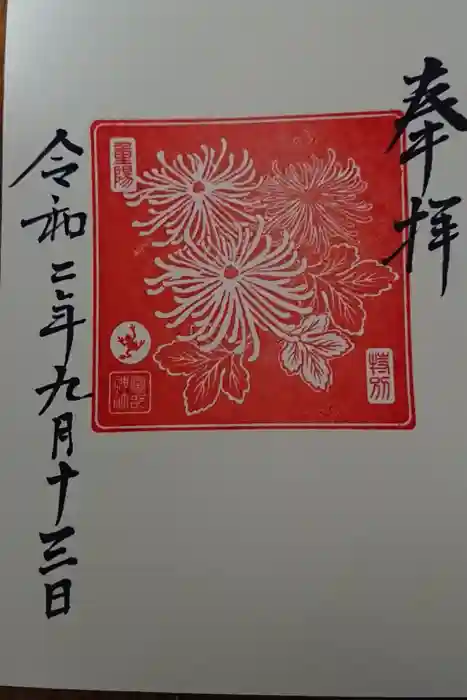 奉拝
重陽
特別
令和二年九月十三日